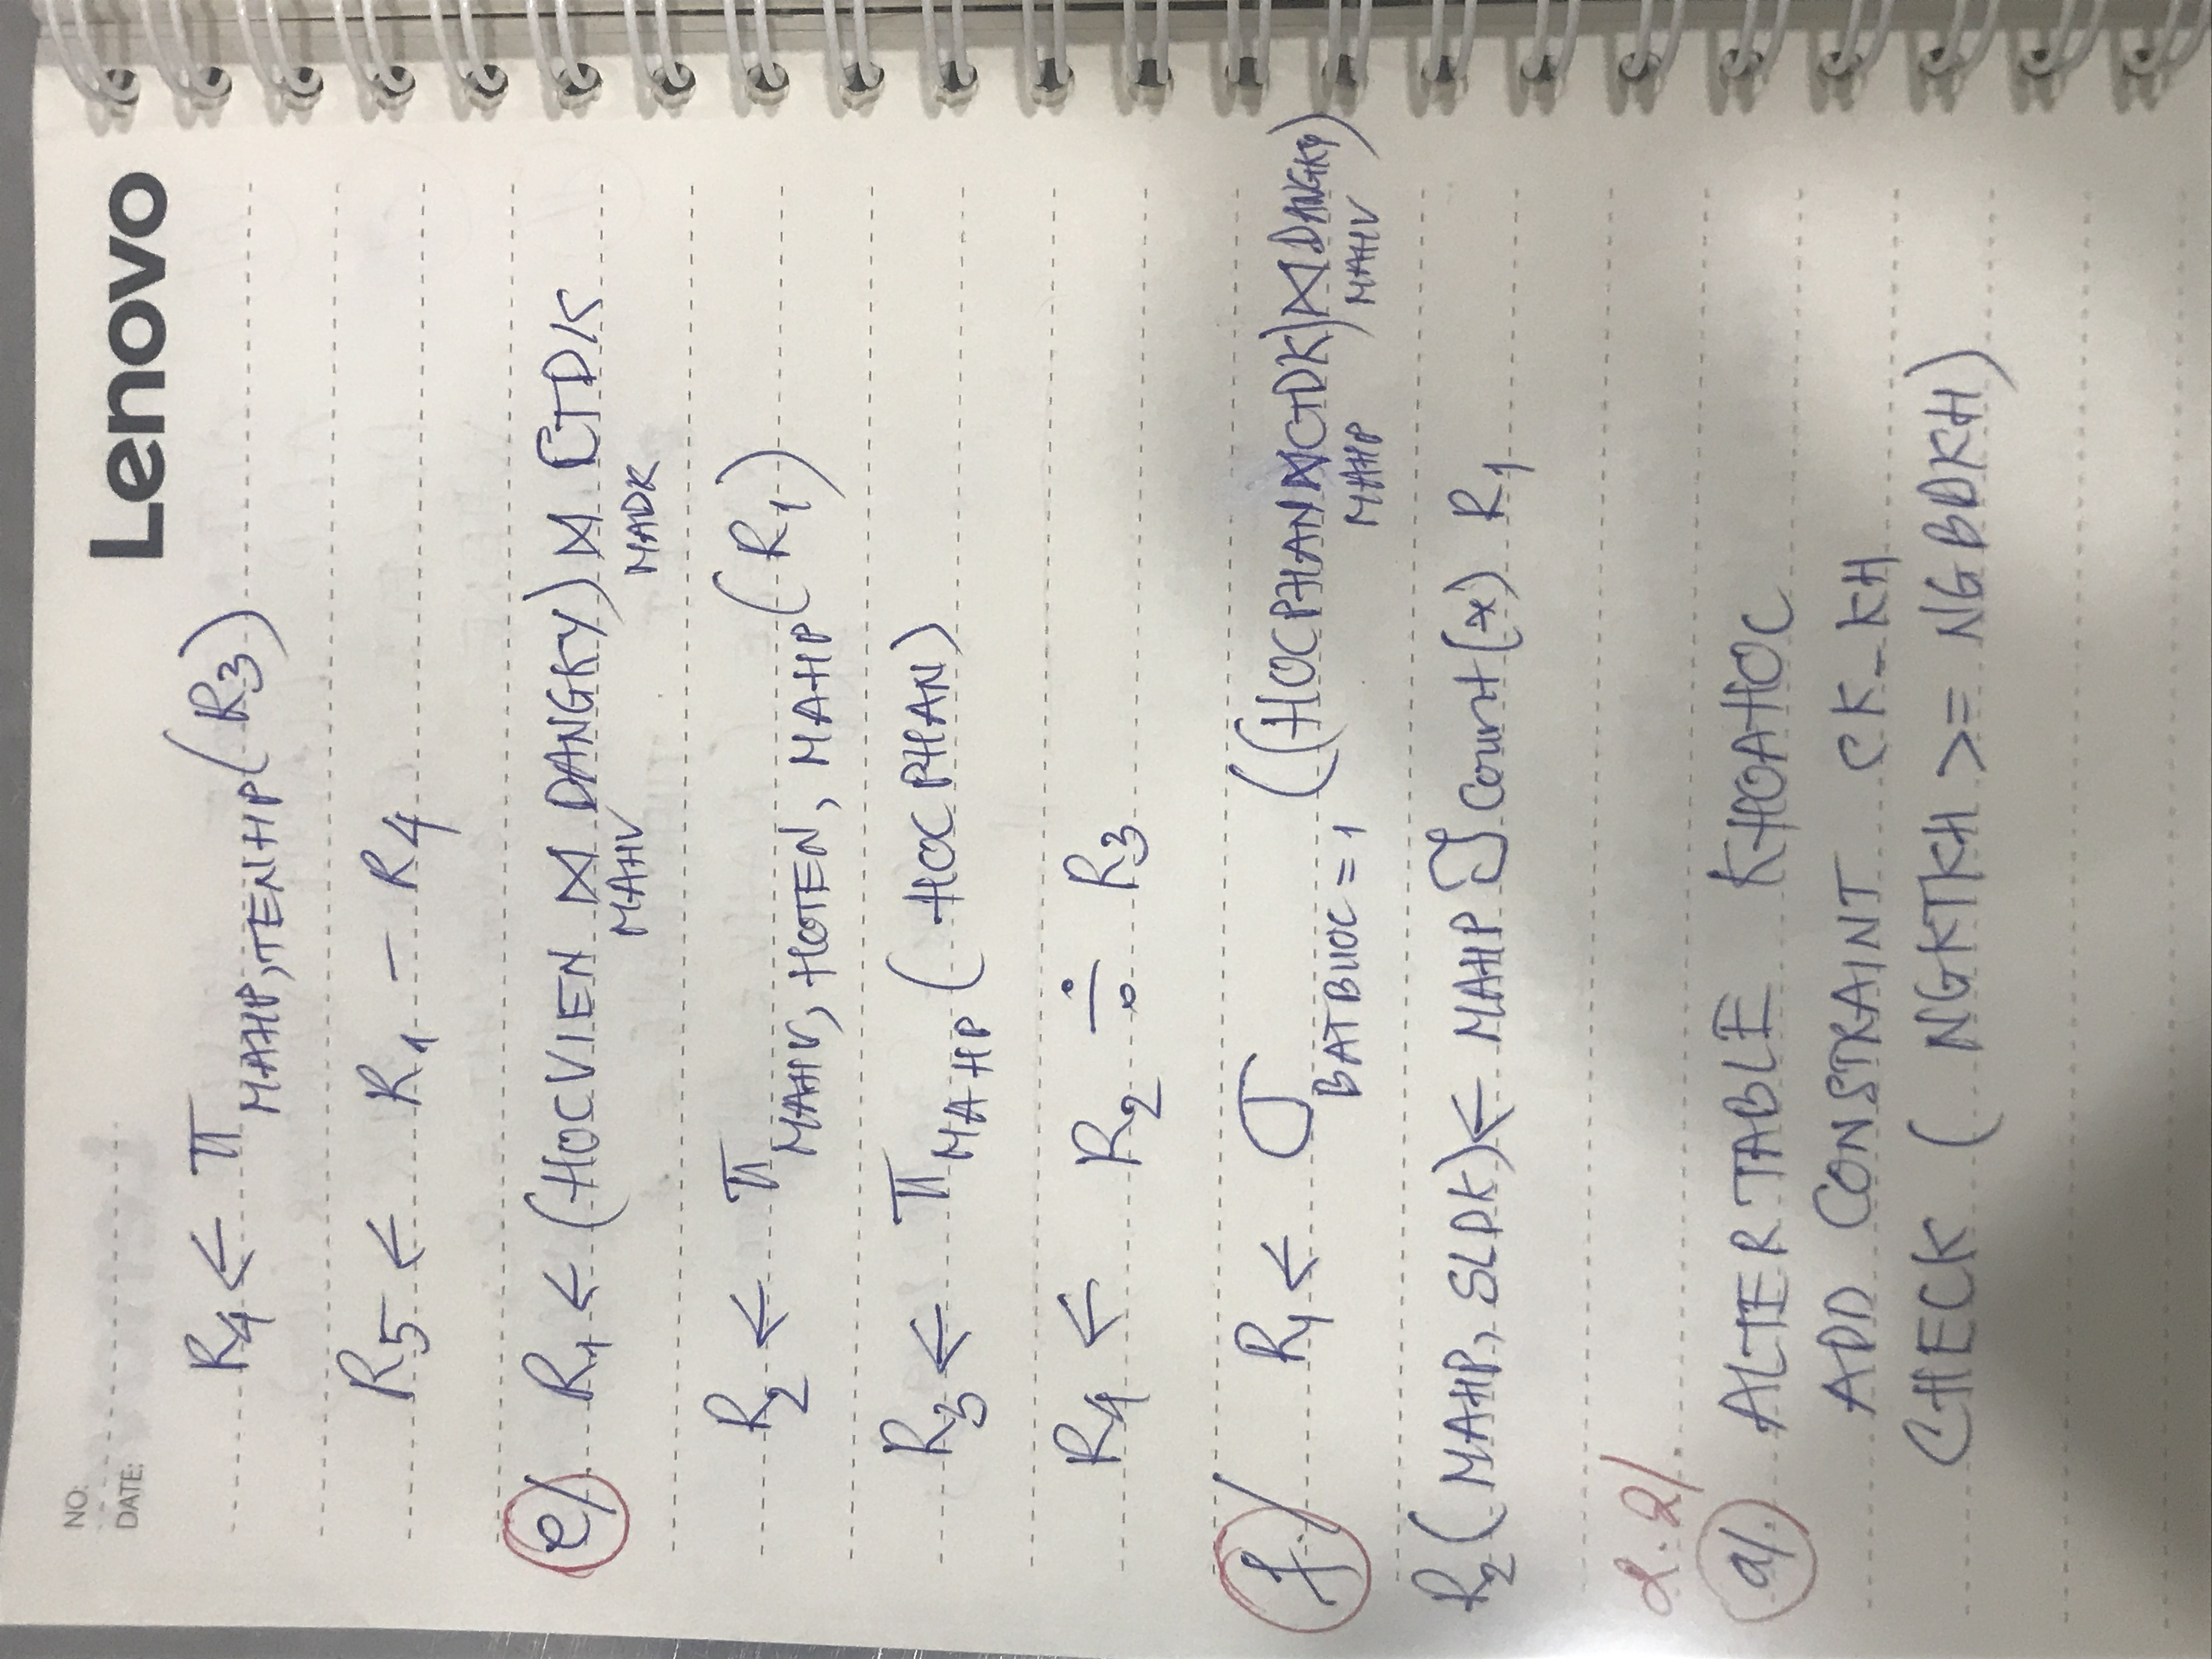 NO:
DATE:
Lenovo
R4 ← π MAHP, TENHP (R3)
R5 ← R1 − R4
e/ R1 ← (HOCVIEN ⋈ MAHV DANGKY) ⋈ MADK CTDK
R2 ← π MAHV, HOTEN, MAHP (R1)
R3 ← π MAHP (HOCPHAN)
R4 ← R2 ÷ R3
f./ R1 ← σ BATBUOC = 1 ((HOCPHAN ⋈ MAHP CTDK) ⋈ MAHV DANGKY)
R2 (MAHP, SLDK) ← MAHP ℑ Count(*) R1
2.2/.
a/. ALTER TABLE KHOAHOC
ADD CONSTRAINT CK_KH
CHECK ( NGKTKH >= NGBDKH)